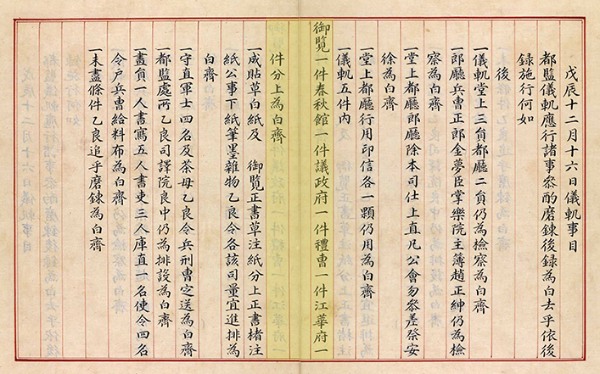 戊辰十二月十六日儀軌事目
都監儀軌應行諸事參酌磨鍊後錄為白去乎依後
錄施行何如
後
一儀軌堂上三員都廳二員仍為檢察為白齊
一郎廳兵曹正郎金夢臣掌樂院主簿趙正紳仍為檢
察為白齊
一堂上都廳郎廳除本司仕上直凡公會勿參差祭安
徐為白齊
一堂上都廳行用印信各一顆仍用為白齊
一儀軌五件內
御覽一件春秋館一件議政府一件禮曹一件江華府一
件分上為白齊
一咸貼草白紙及 御覽正書草注紙分上正書楮注
紙公事下紙筆墨雜物乙良令各該司量宜進排為
白齊
一守直軍士四名及茶母乙良令兵刑曹定送為白齊
一都監處所乙良司譯院良中仍為排設為白齊
一畫員一人書寫五人書吏三人庫直一名使令四名
令戶兵曹給料布為白齊
一未盡條件乙良追乎磨鍊為白齊